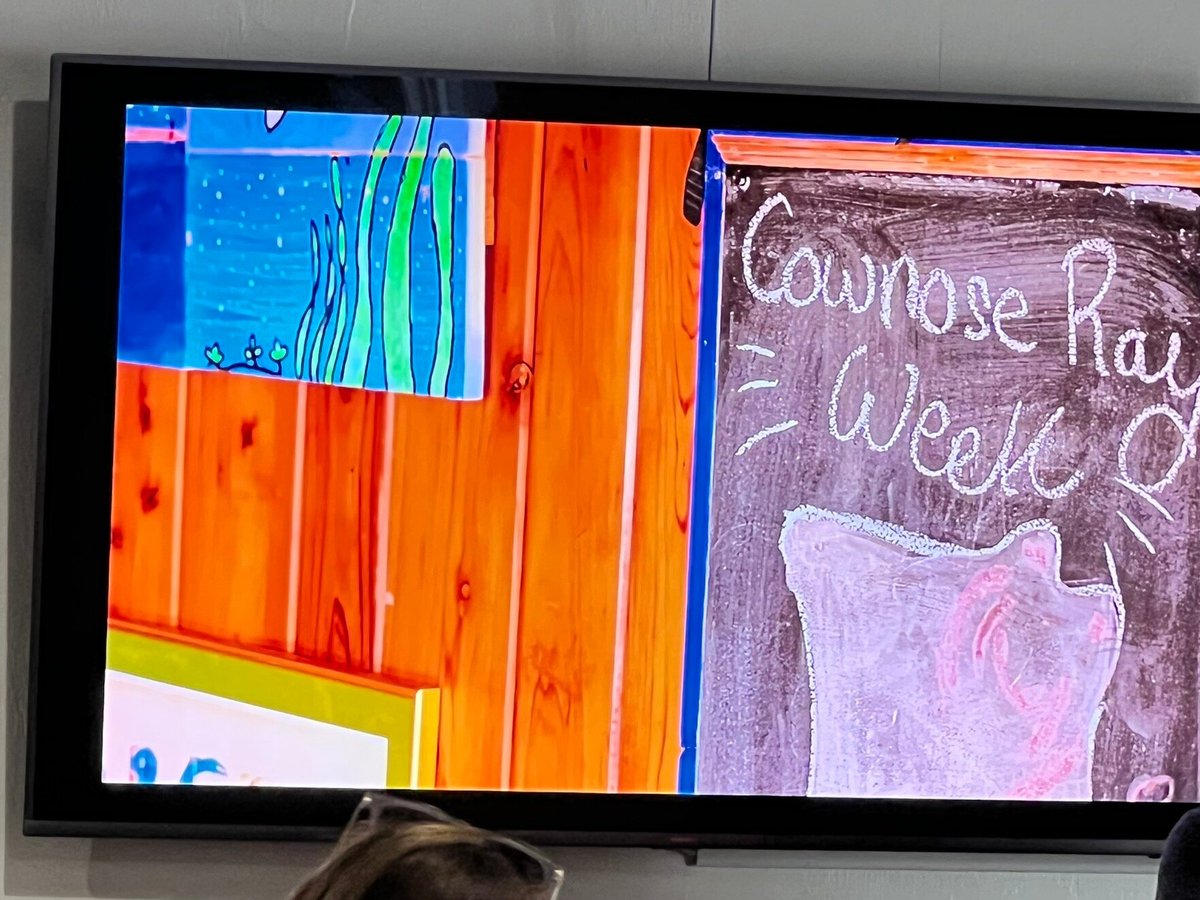 Cownose Ray
Week